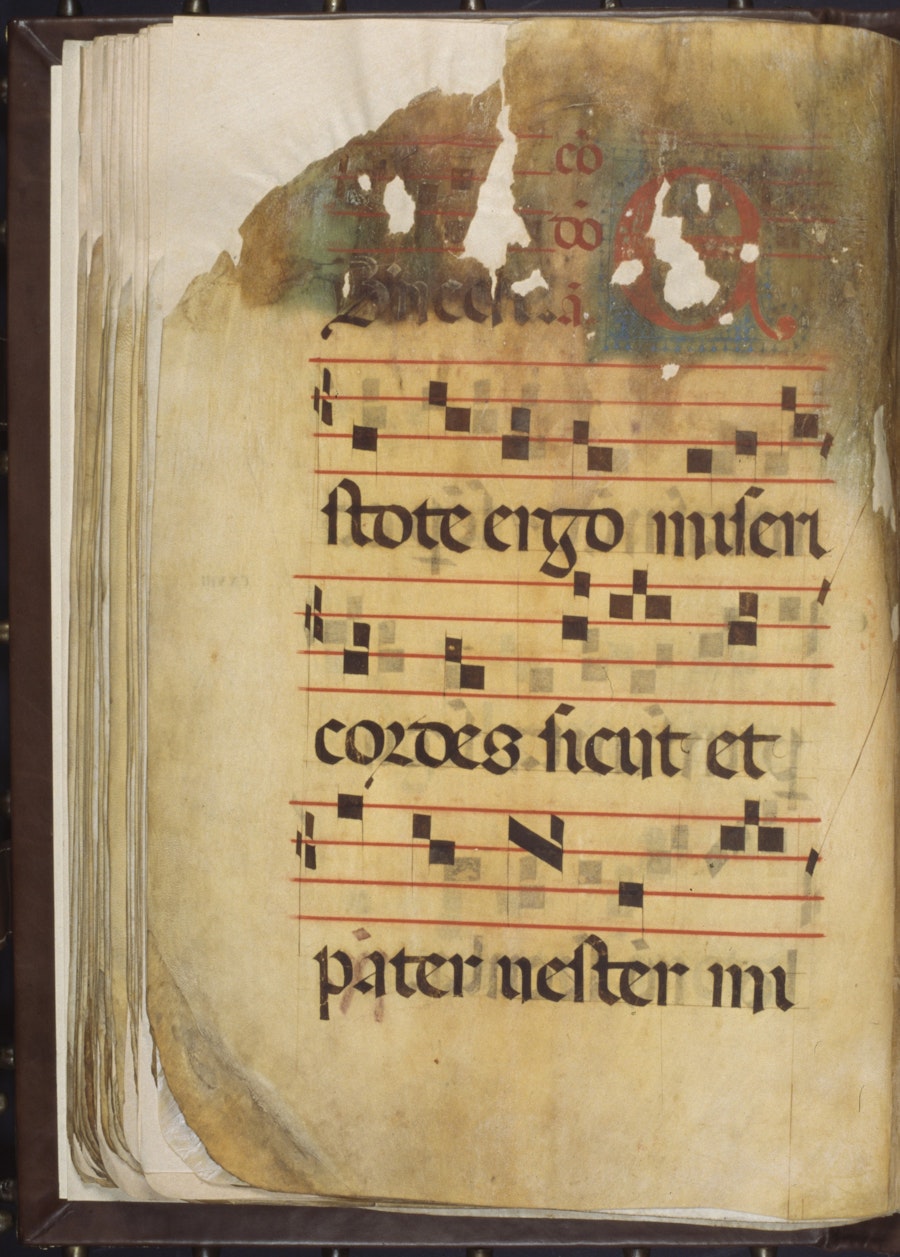 cō
dō
ā E
stote ergo miseri
cordes sicut et
pater uester mi